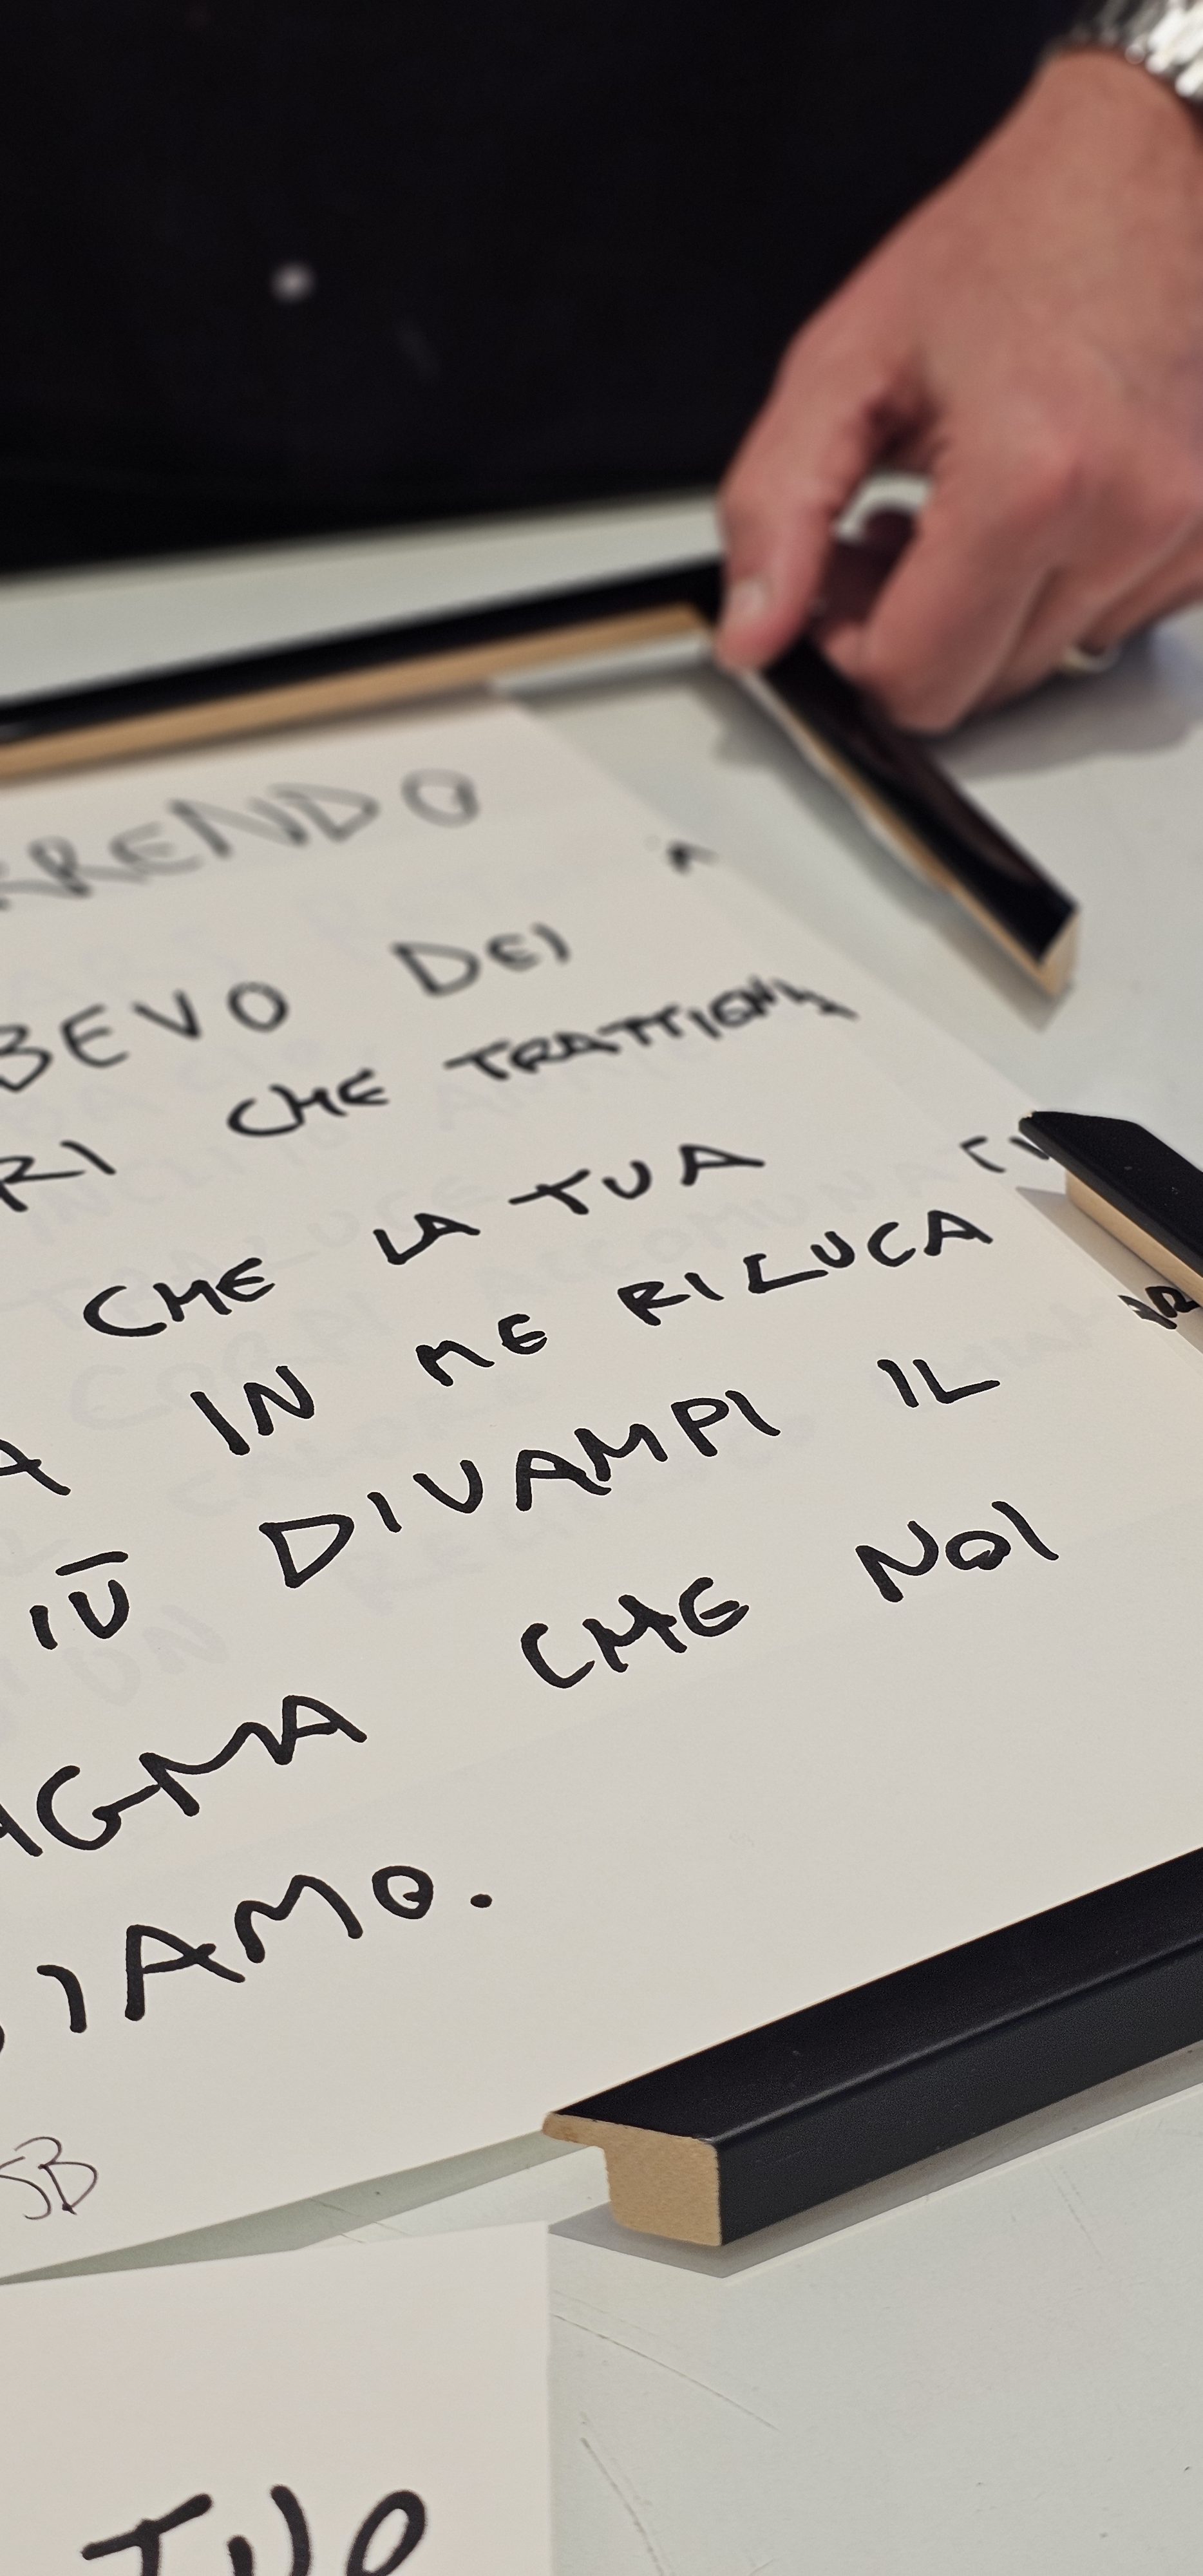 RRENDO
BEVO DEI
RI CHE TRATTIENI
CHE LA TUA
A IN ME RILUCA
IÙ DIVAMPI IL
AGMA CHE NOI
IAMO.
SB
TUO